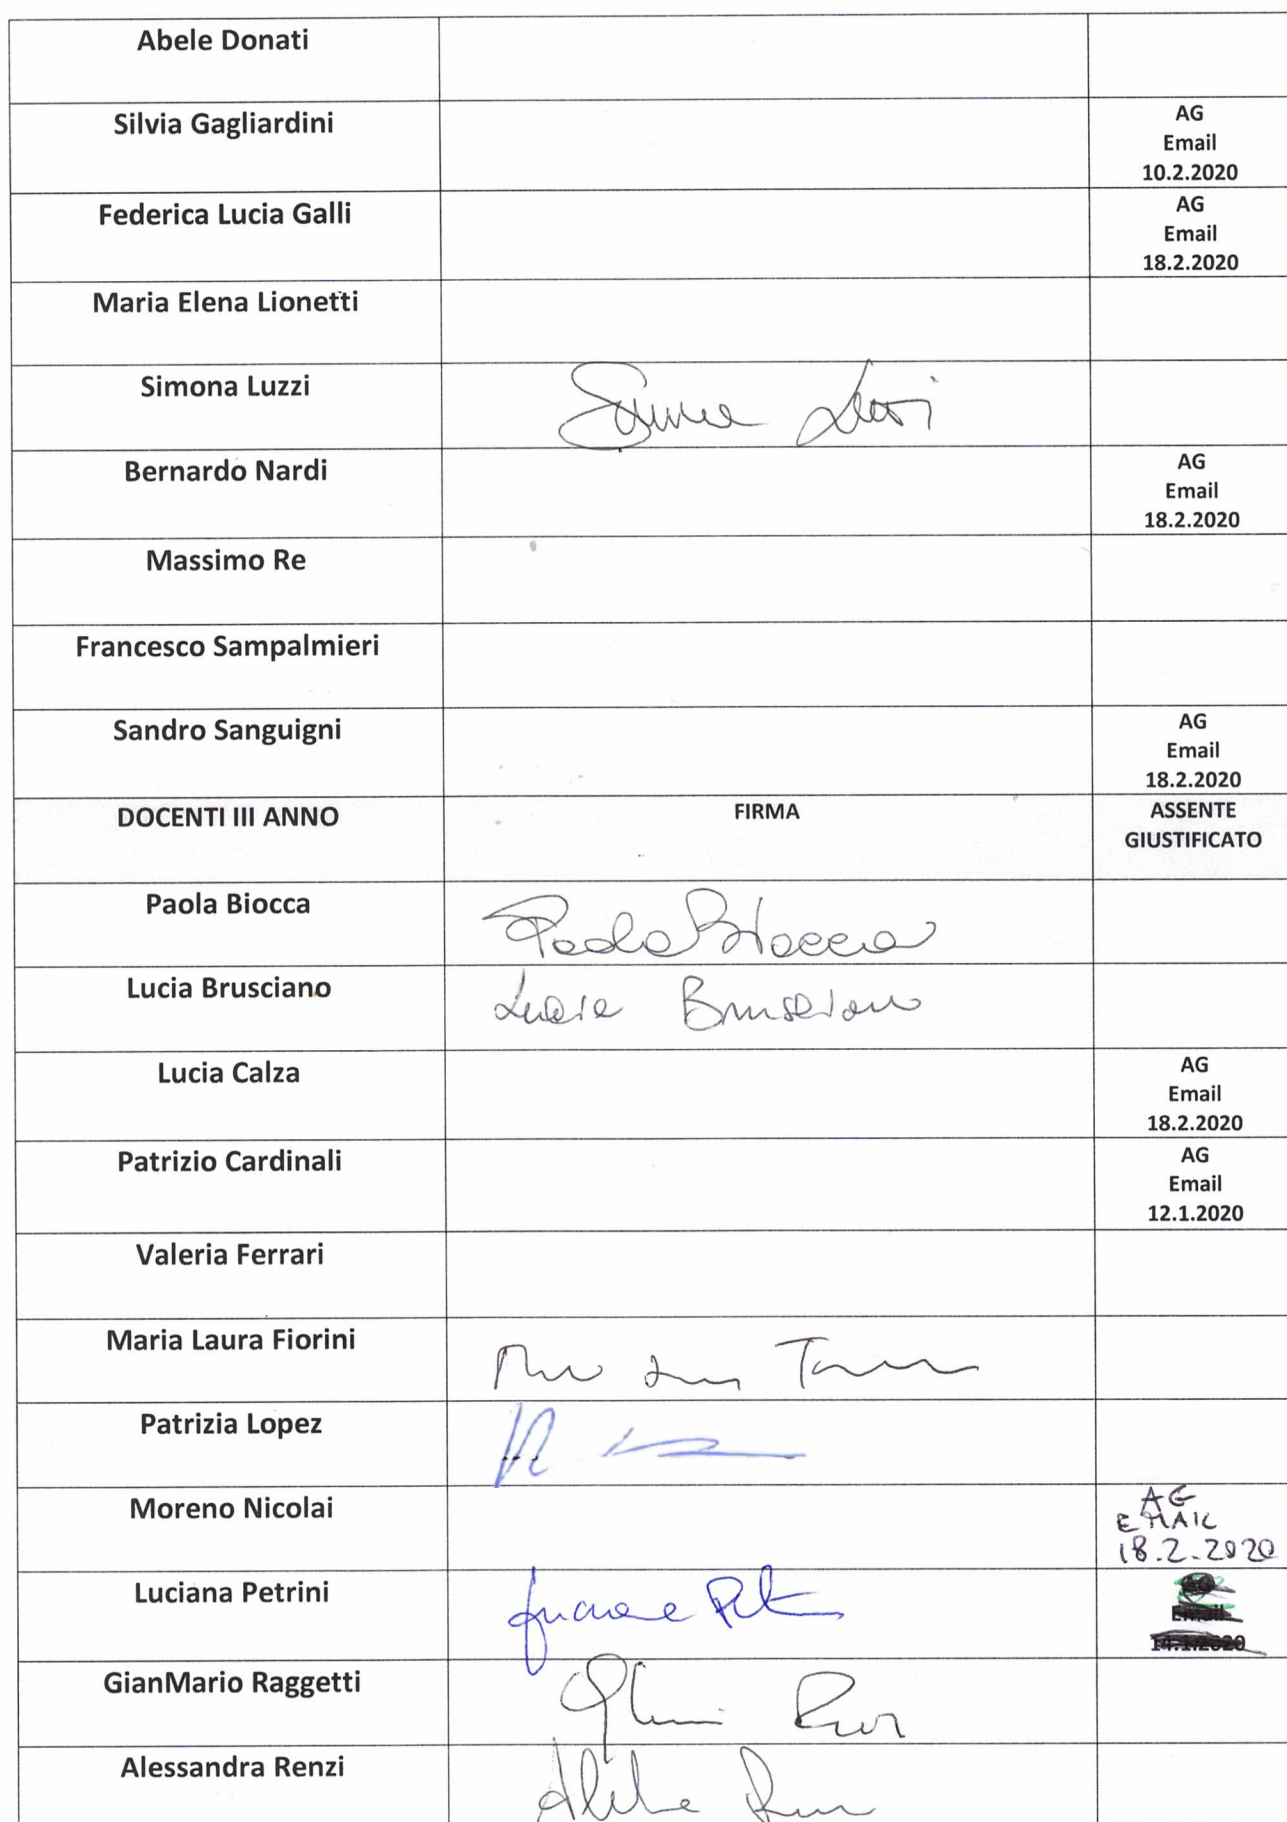 Abele Donati
Silvia Gagliardini
AG
Email
10.2.2020
Federica Lucia Galli
AG
Email
18.2.2020
Maria Elena Lionetti
Simona Luzzi
Bernardo Nardi
AG
Email
18.2.2020
Massimo Re
Francesco Sampalmieri
Sandro Sanguigni
AG
Email
18.2.2020
DOCENTI III ANNO
FIRMA
ASSENTE
GIUSTIFICATO
Paola Biocca
Paola Biocca
Lucia Brusciano
Lucia Brusciano
Lucia Calza
AG
Email
18.2.2020
Patrizio Cardinali
AG
Email
12.1.2020
Valeria Ferrari
Maria Laura Fiorini
Patrizia Lopez
Moreno Nicolai
AG
EMAIL
18.2.2020
Luciana Petrini
Email
14.1.2020
GianMario Raggetti
Alessandra Renzi